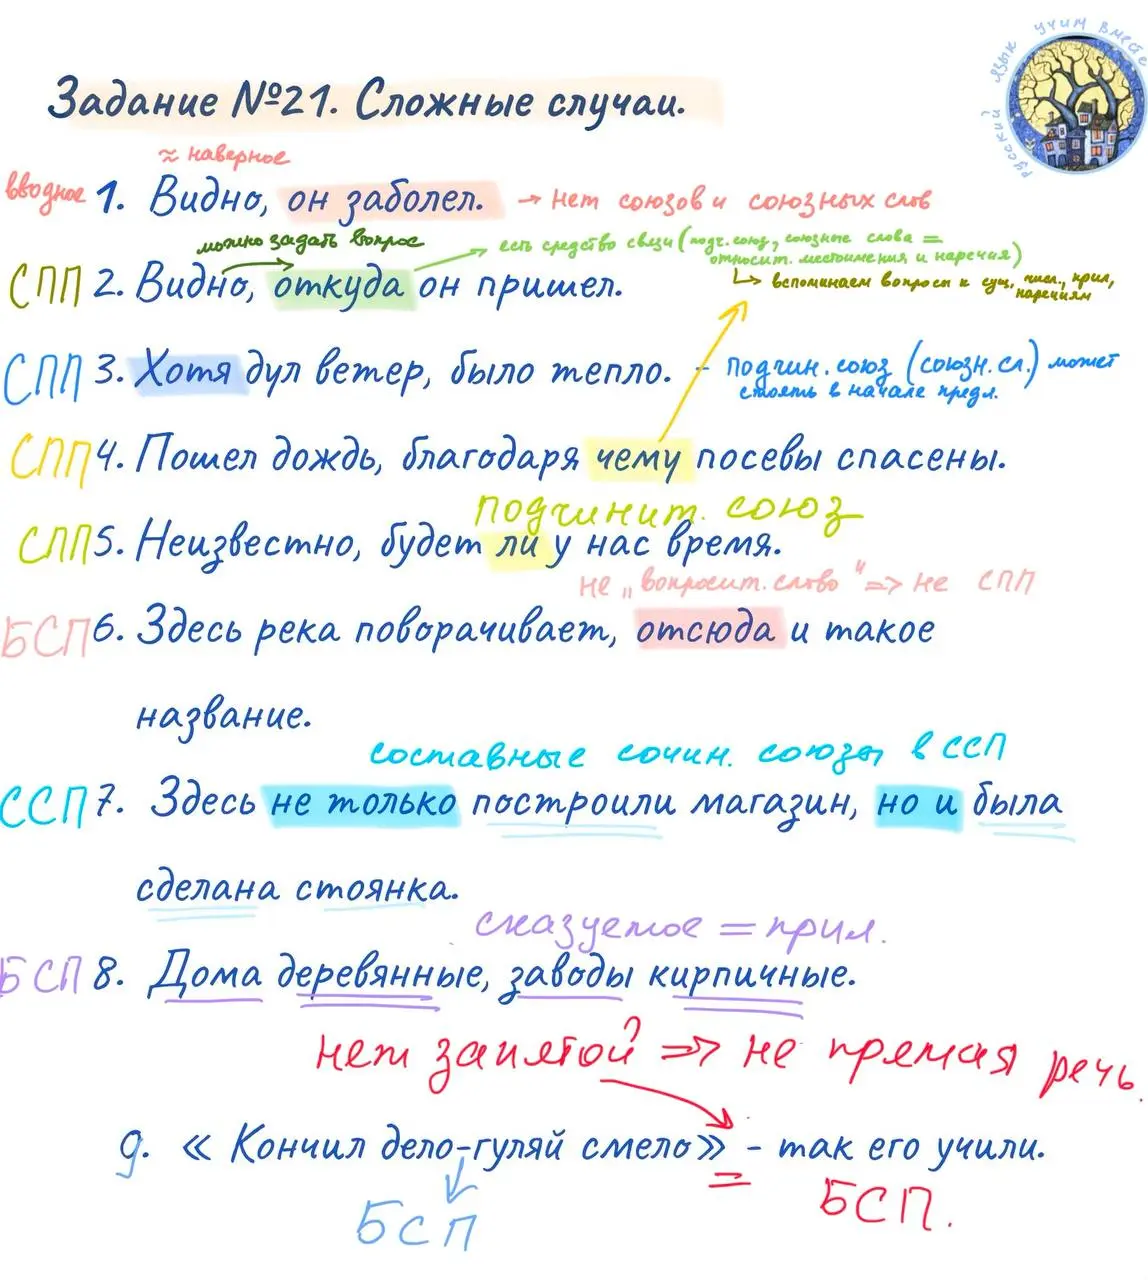 русский язык учим вместе
Задание №21. Сложные случаи.
≈ наверное
вводное 1. Видно, он заболел. → нет союзов и союзных слов
можно задать вопрос
есть средство связи (подч. союз, союзные слова =
относит. местоимения и наречия)
СПП 2. Видно, откуда он пришел.
вспоминаем вопросы к сущ., числ., прил.,
наречиям
СПП 3. Хотя дул ветер, было тепло. - подчин. союз (союзн. сл.) может
стоять в начале предл.
СПП 4. Пошел дождь, благодаря чему посевы спасены.
подчинит. союз
СПП 5. Неизвестно, будет ли у нас время.
не „вопросит. слово" => не СПП
БСП 6. Здесь река поворачивает, отсюда и такое
название.
составные сочин. союзы в ССП
ССП 7. Здесь не только построили магазин, но и была
сделана стоянка.
сказуемое = прил.
БСП 8. Дома деревянные, заводы кирпичные.
нет запятой => не прямая речь.
9. « Кончил дело-гуляй смело» - так его учили.
БСП
БСП.